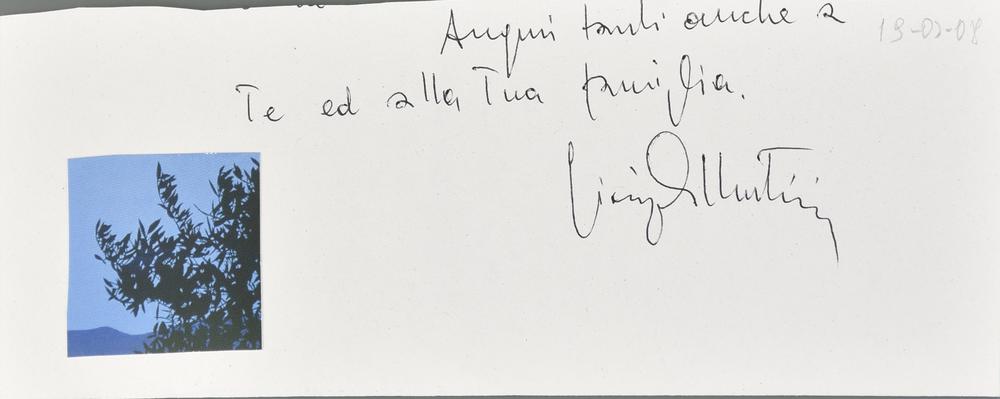 Auguri tanti anche a
19-02-08
Te ed alla Tua famiglia.